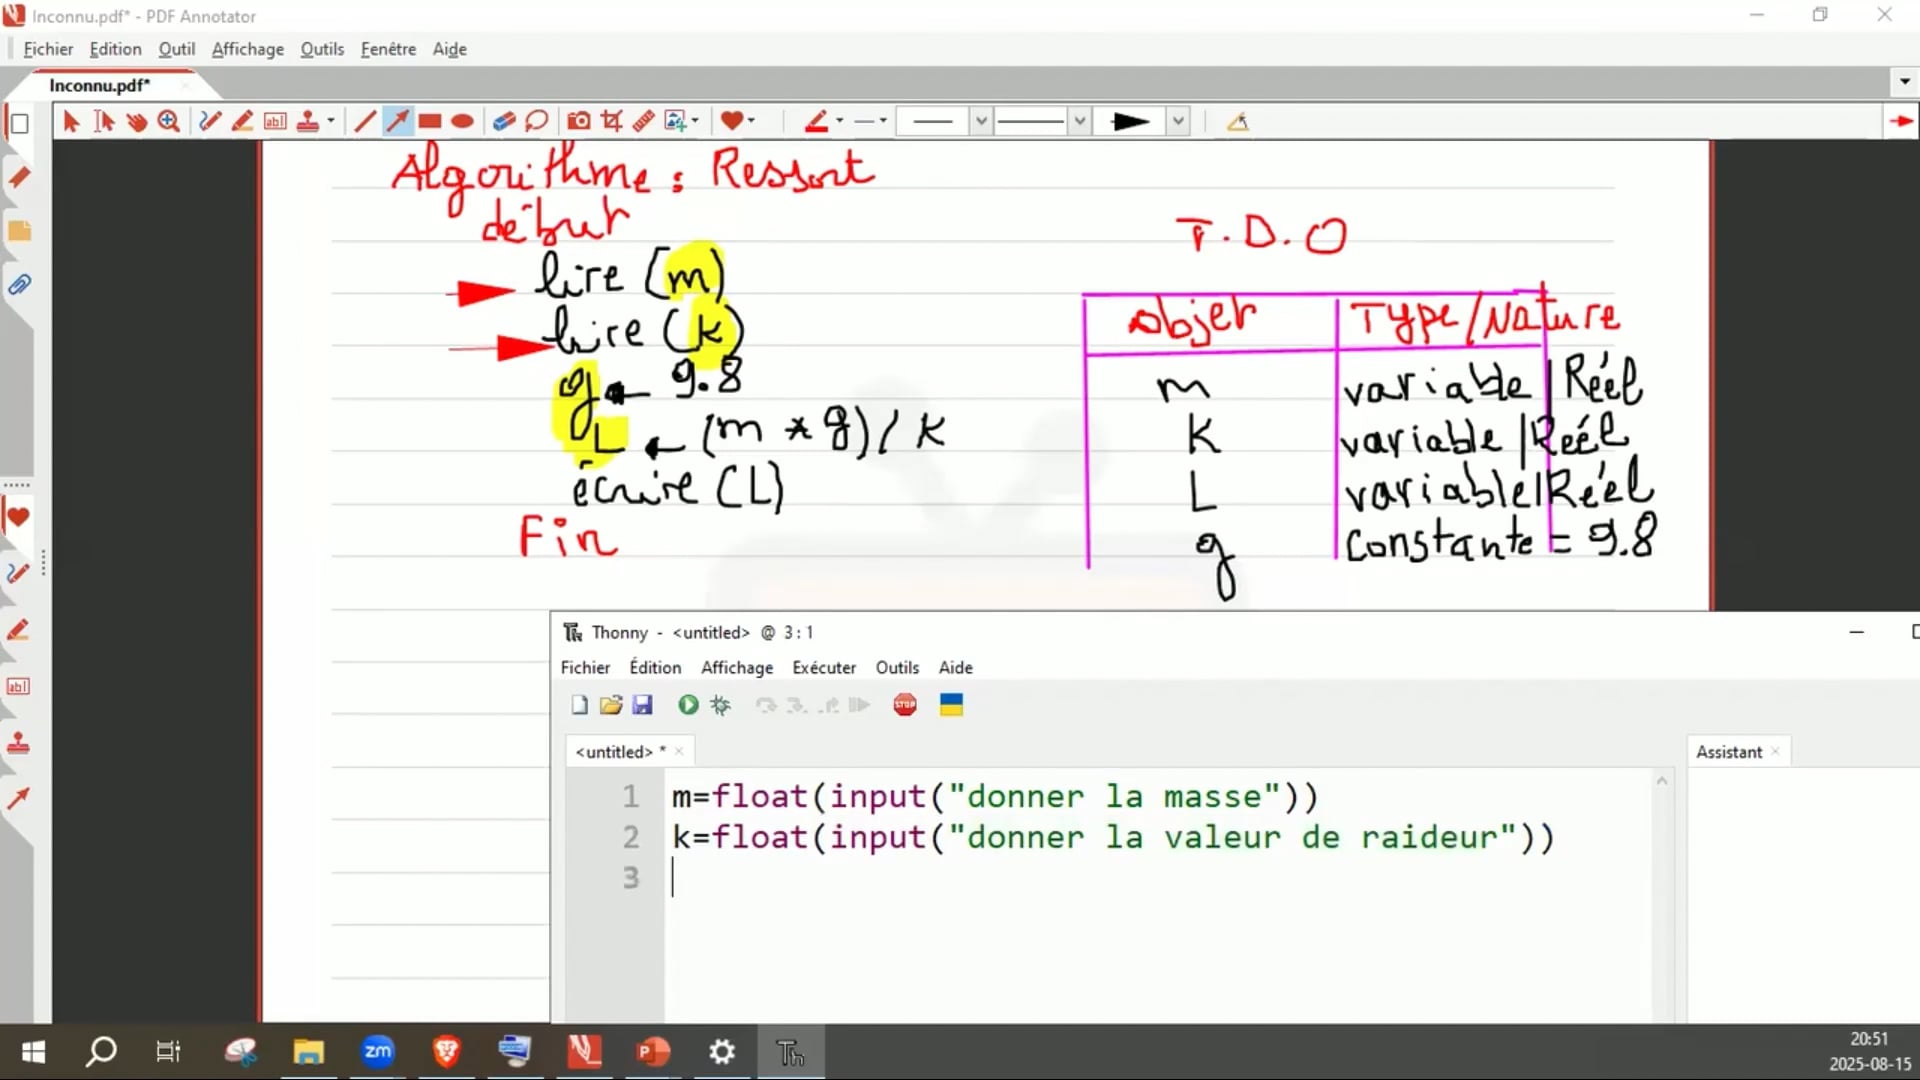 Inconnu.pdf* - PDF Annotator
Fichier Edition Outil Affichage Outils Fenêtre Aide
Inconnu.pdf*
Algorithme : Ressort
début
lire (m)
lire (k)
g ← 9.8
L ← (m * g) / k
écrire (L)
Fin
T.D.O
Objet Type/Nature
m variable | Réel
K variable | Réel
L variable | Réel
g constante = 9.8
Thonny - <untitled> @ 3 : 1
Fichier Édition Affichage Exécuter Outils Aide
STOP
<untitled> *
Assistant
1 m=float(input("donner la masse"))
2 k=float(input("donner la valeur de raideur"))
3
zm
Th
20:51
2025-08-15